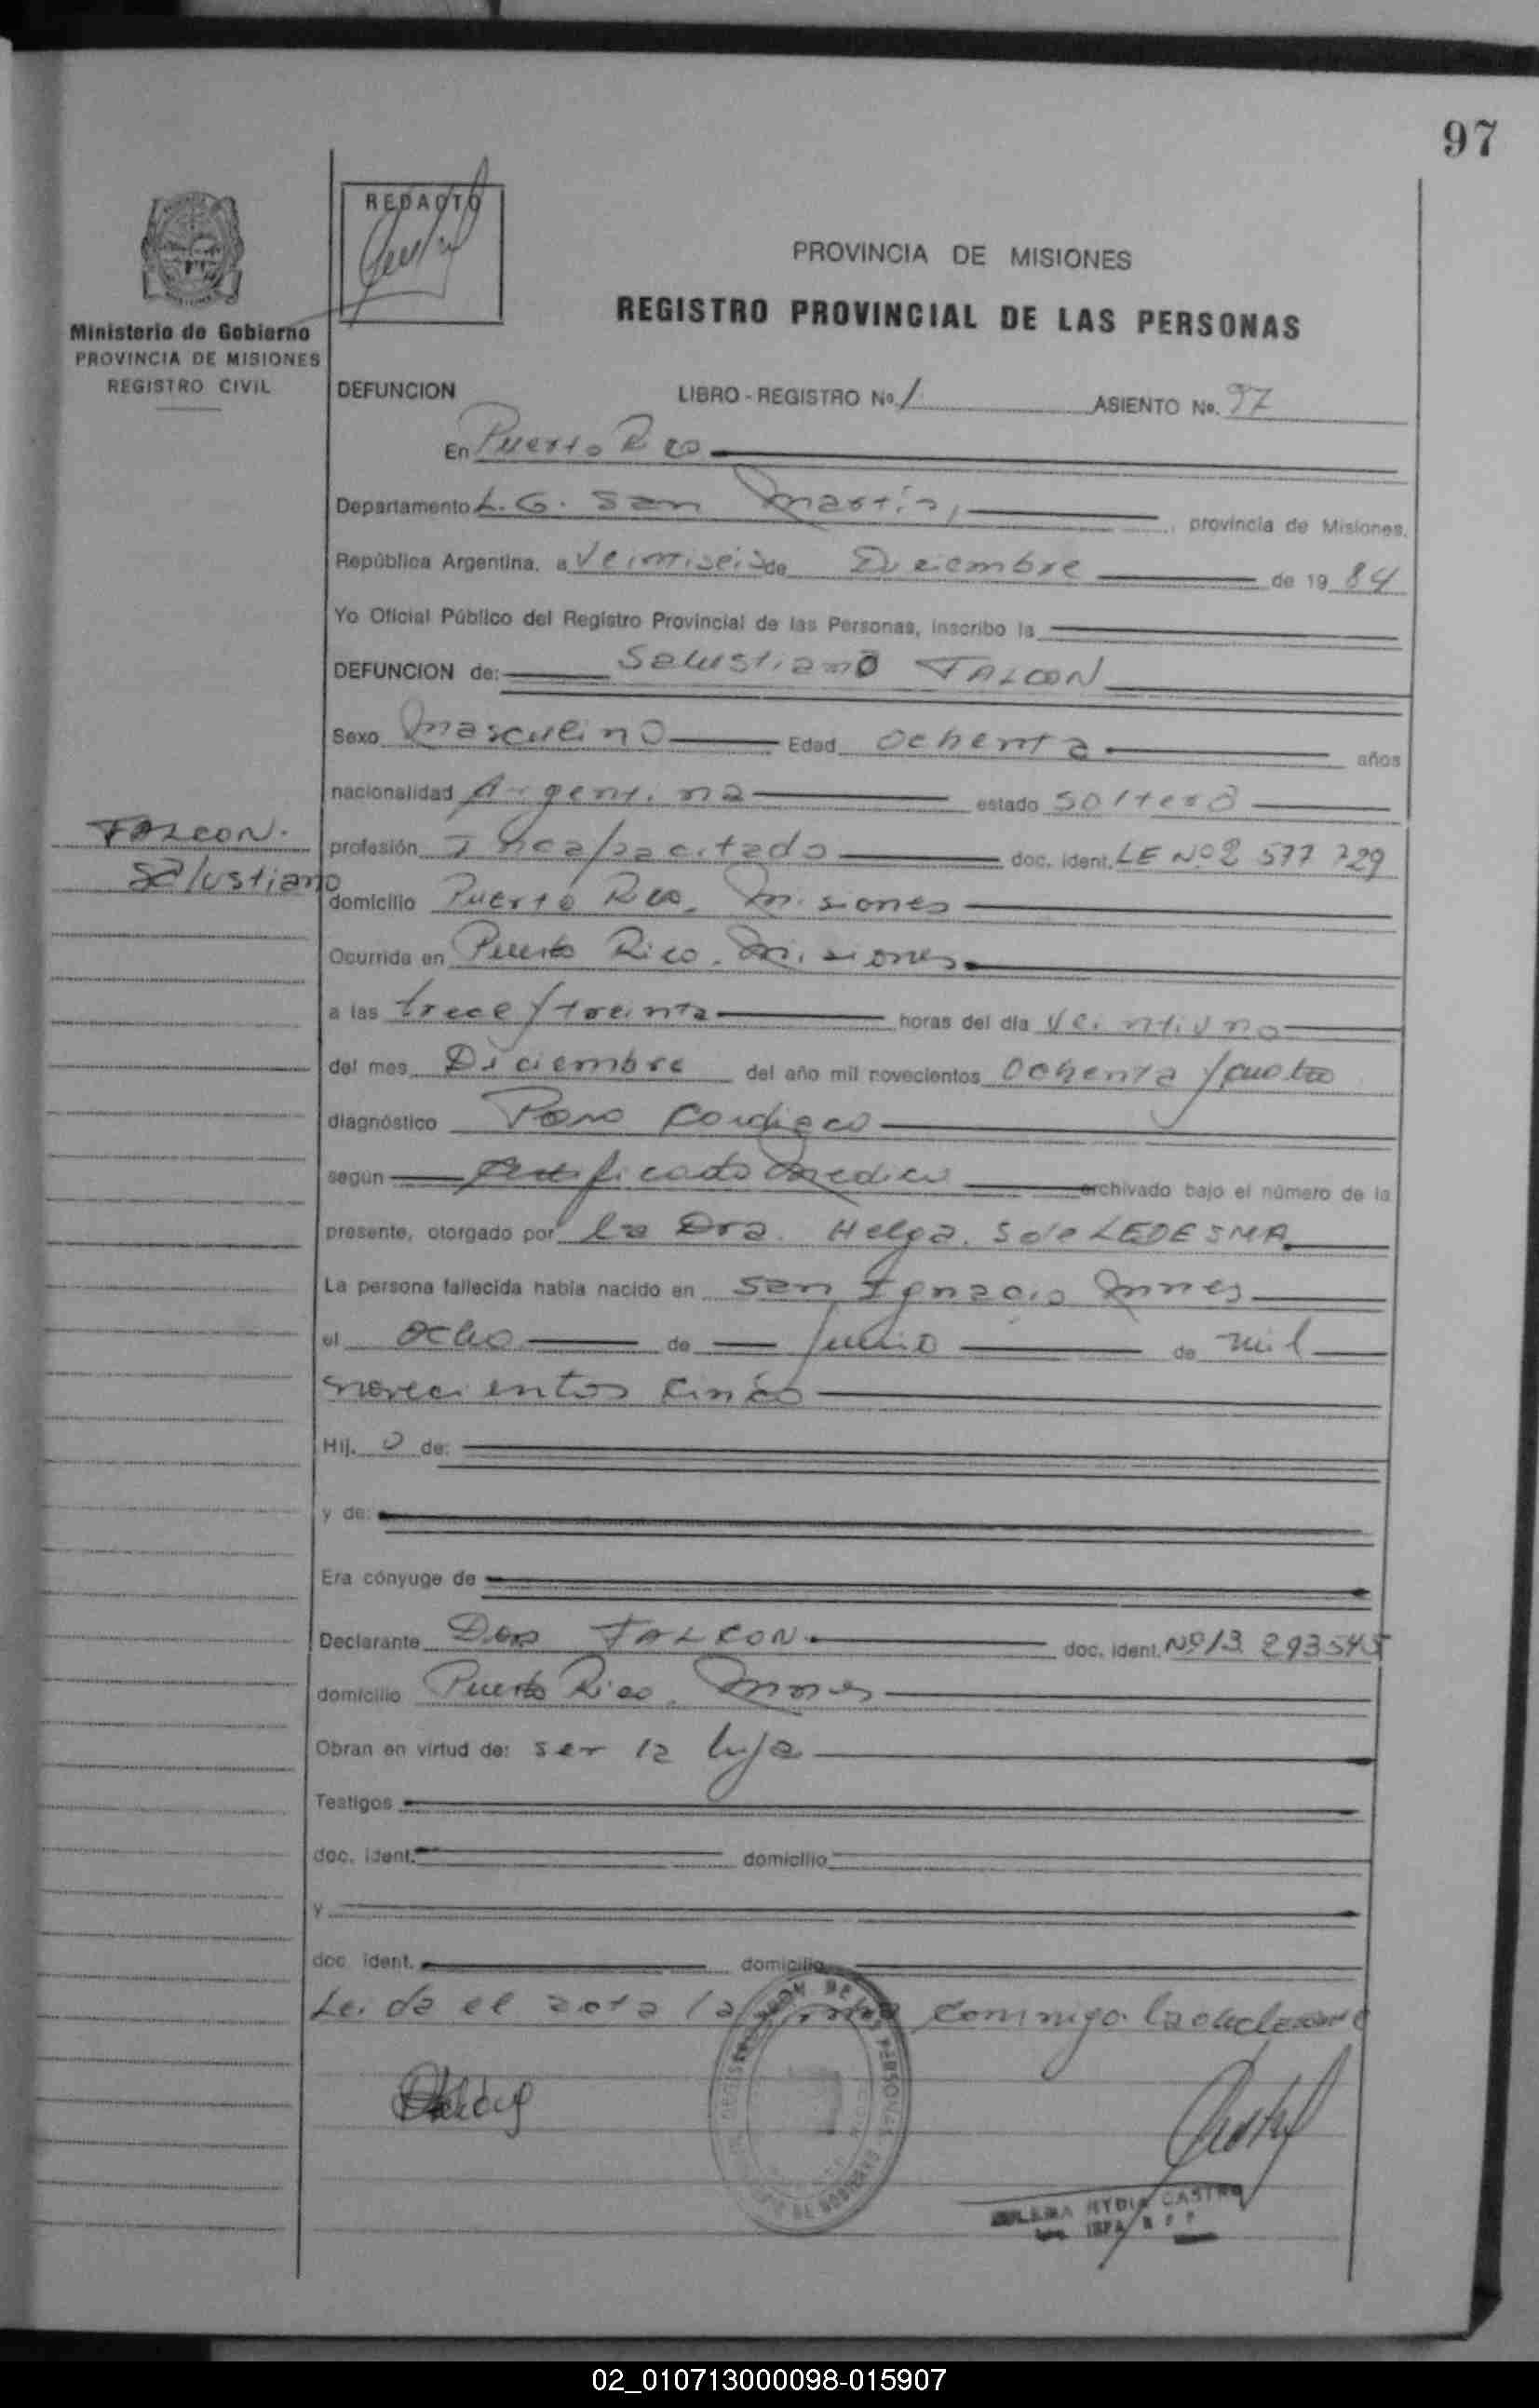 97
REDACTO
PROVINCIA DE MISIONES
REGISTRO PROVINCIAL DE LAS PERSONAS
Ministerio de Gobierno
PROVINCIA DE MISIONES
REGISTRO CIVIL
DEFUNCION LIBRO - REGISTRO No. 1 ASIENTO No. 97
En Puerto Rico
Departamento L. G. San Martín, provincia de Misiones.
República Argentina, a Veintiseis de Diciembre de 19 84
Yo Oficial Público del Registro Provincial de las Personas, inscribo la
DEFUNCION de: Salustiano FALCON
Sexo Masculino Edad ochenta años
nacionalidad Argentina estado soltero
FALCON.
Salustiano
profesión Incapacitado doc. ident. LE Nº 2 577 729
domicilio Puerto Rico, Misiones
Ocurrida en Puerto Rico. Misiones
a las trece y treinta horas del día veintiuno
del mes Diciembre del año mil novecientos ochenta y cuatro
diagnóstico Paro Cardiaco
según Certificado Medico archivado bajo el número de la
presente, otorgado por la Dra. Helga. Sole LEDESMA
La persona fallecida había nacido en San Ignacio Mnes
el ocho de Junio de mil
novecientos cinco
Hij. o de:
y de:
Era cónyuge de
Declarante FALCON doc. ident. Nº 13 293545
domicilio Puerto Rico. Mnes
Obran en virtud de: ser la hija
Testigos
doc. ident. domicilio
y
doc. ident. domicilio
Leida el acta la firma conmigo la declarante
CASTRO